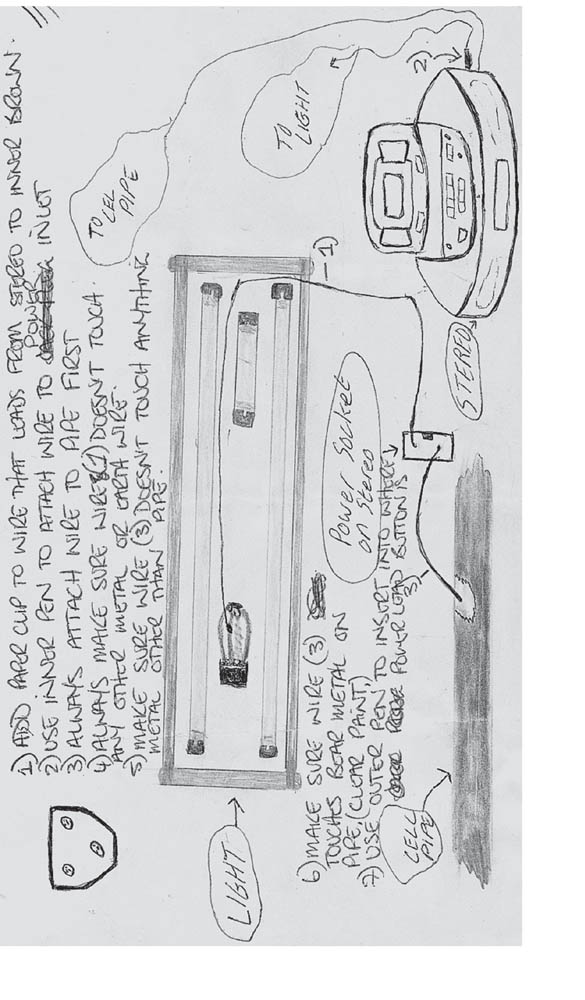 1) ADD PAPER CLIP TO WIRE THAT LEADS FROM STEREO TO INNER BROWN.
2) USE INNER PEN TO ATTACH WIRE TO POWER INLET
3) ALWAYS ATTACH WIRE TO PIPE FIRST
4) ALWAYS MAKE SURE WIRE (1) DOESN'T TOUCH
ANY OTHER METAL OR EARTH WIRE.
5) MAKE SURE WIRE (3) DOESN'T TOUCH ANYTHING
METAL OTHER THAN PIPE.
TO CELL
PIPE
TO
LIGHT
2)
1)
LIGHT
Power Socket
on Stereo
STEREO
6) MAKE SURE WIRE (3)
TOUCHES BEAR METAL ON
PIPE, (CLEAR PAINT,)
7) USE OUTER PEN TO INSERT INTO WHERE
POWER LEAD BUTTON IS
3)
CELL
PIPE